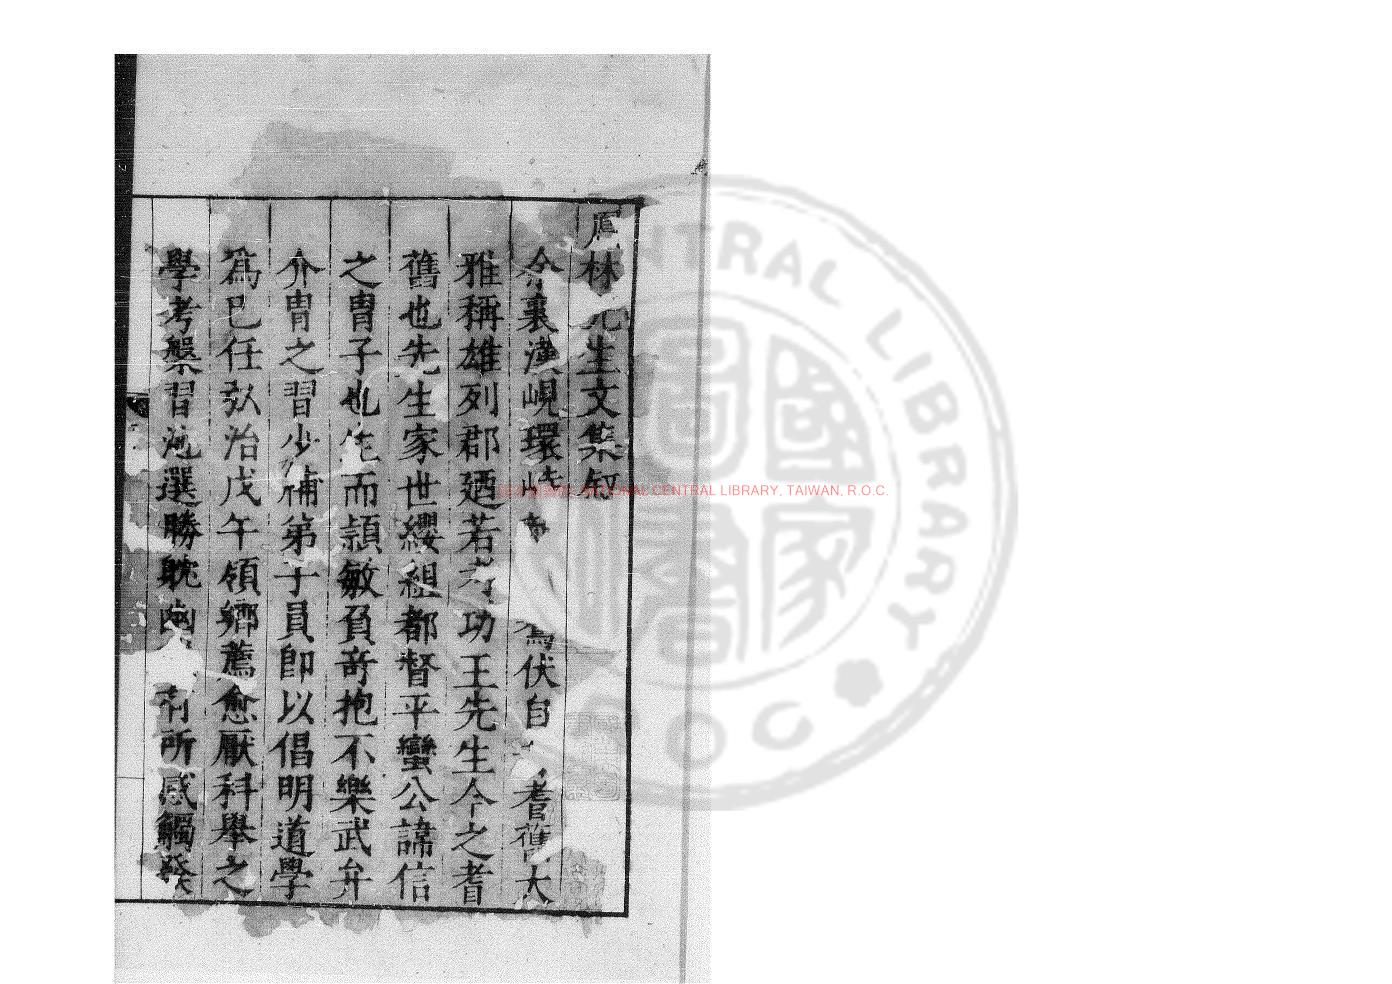 林先生文集叙
余襄漢峴環峙 爲伏自 耆舊大
雅稱雄列郡廼若 功王先生今之耆
舊也先生家世纓組都督平蠻公諱信
之胄子也生而頴敏負竒抱不樂武弁
介胄之習少補弟子員即以倡明道學
爲巳任弘治戊午領鄉薦愈厭科舉之
學考槃習池選勝躭幽 有所感觸發
國家圖書館, NATIONAL CENTRAL LIBRARY, TAIWAN, R.O.C.
CENTRAL LIBRARY
ROC